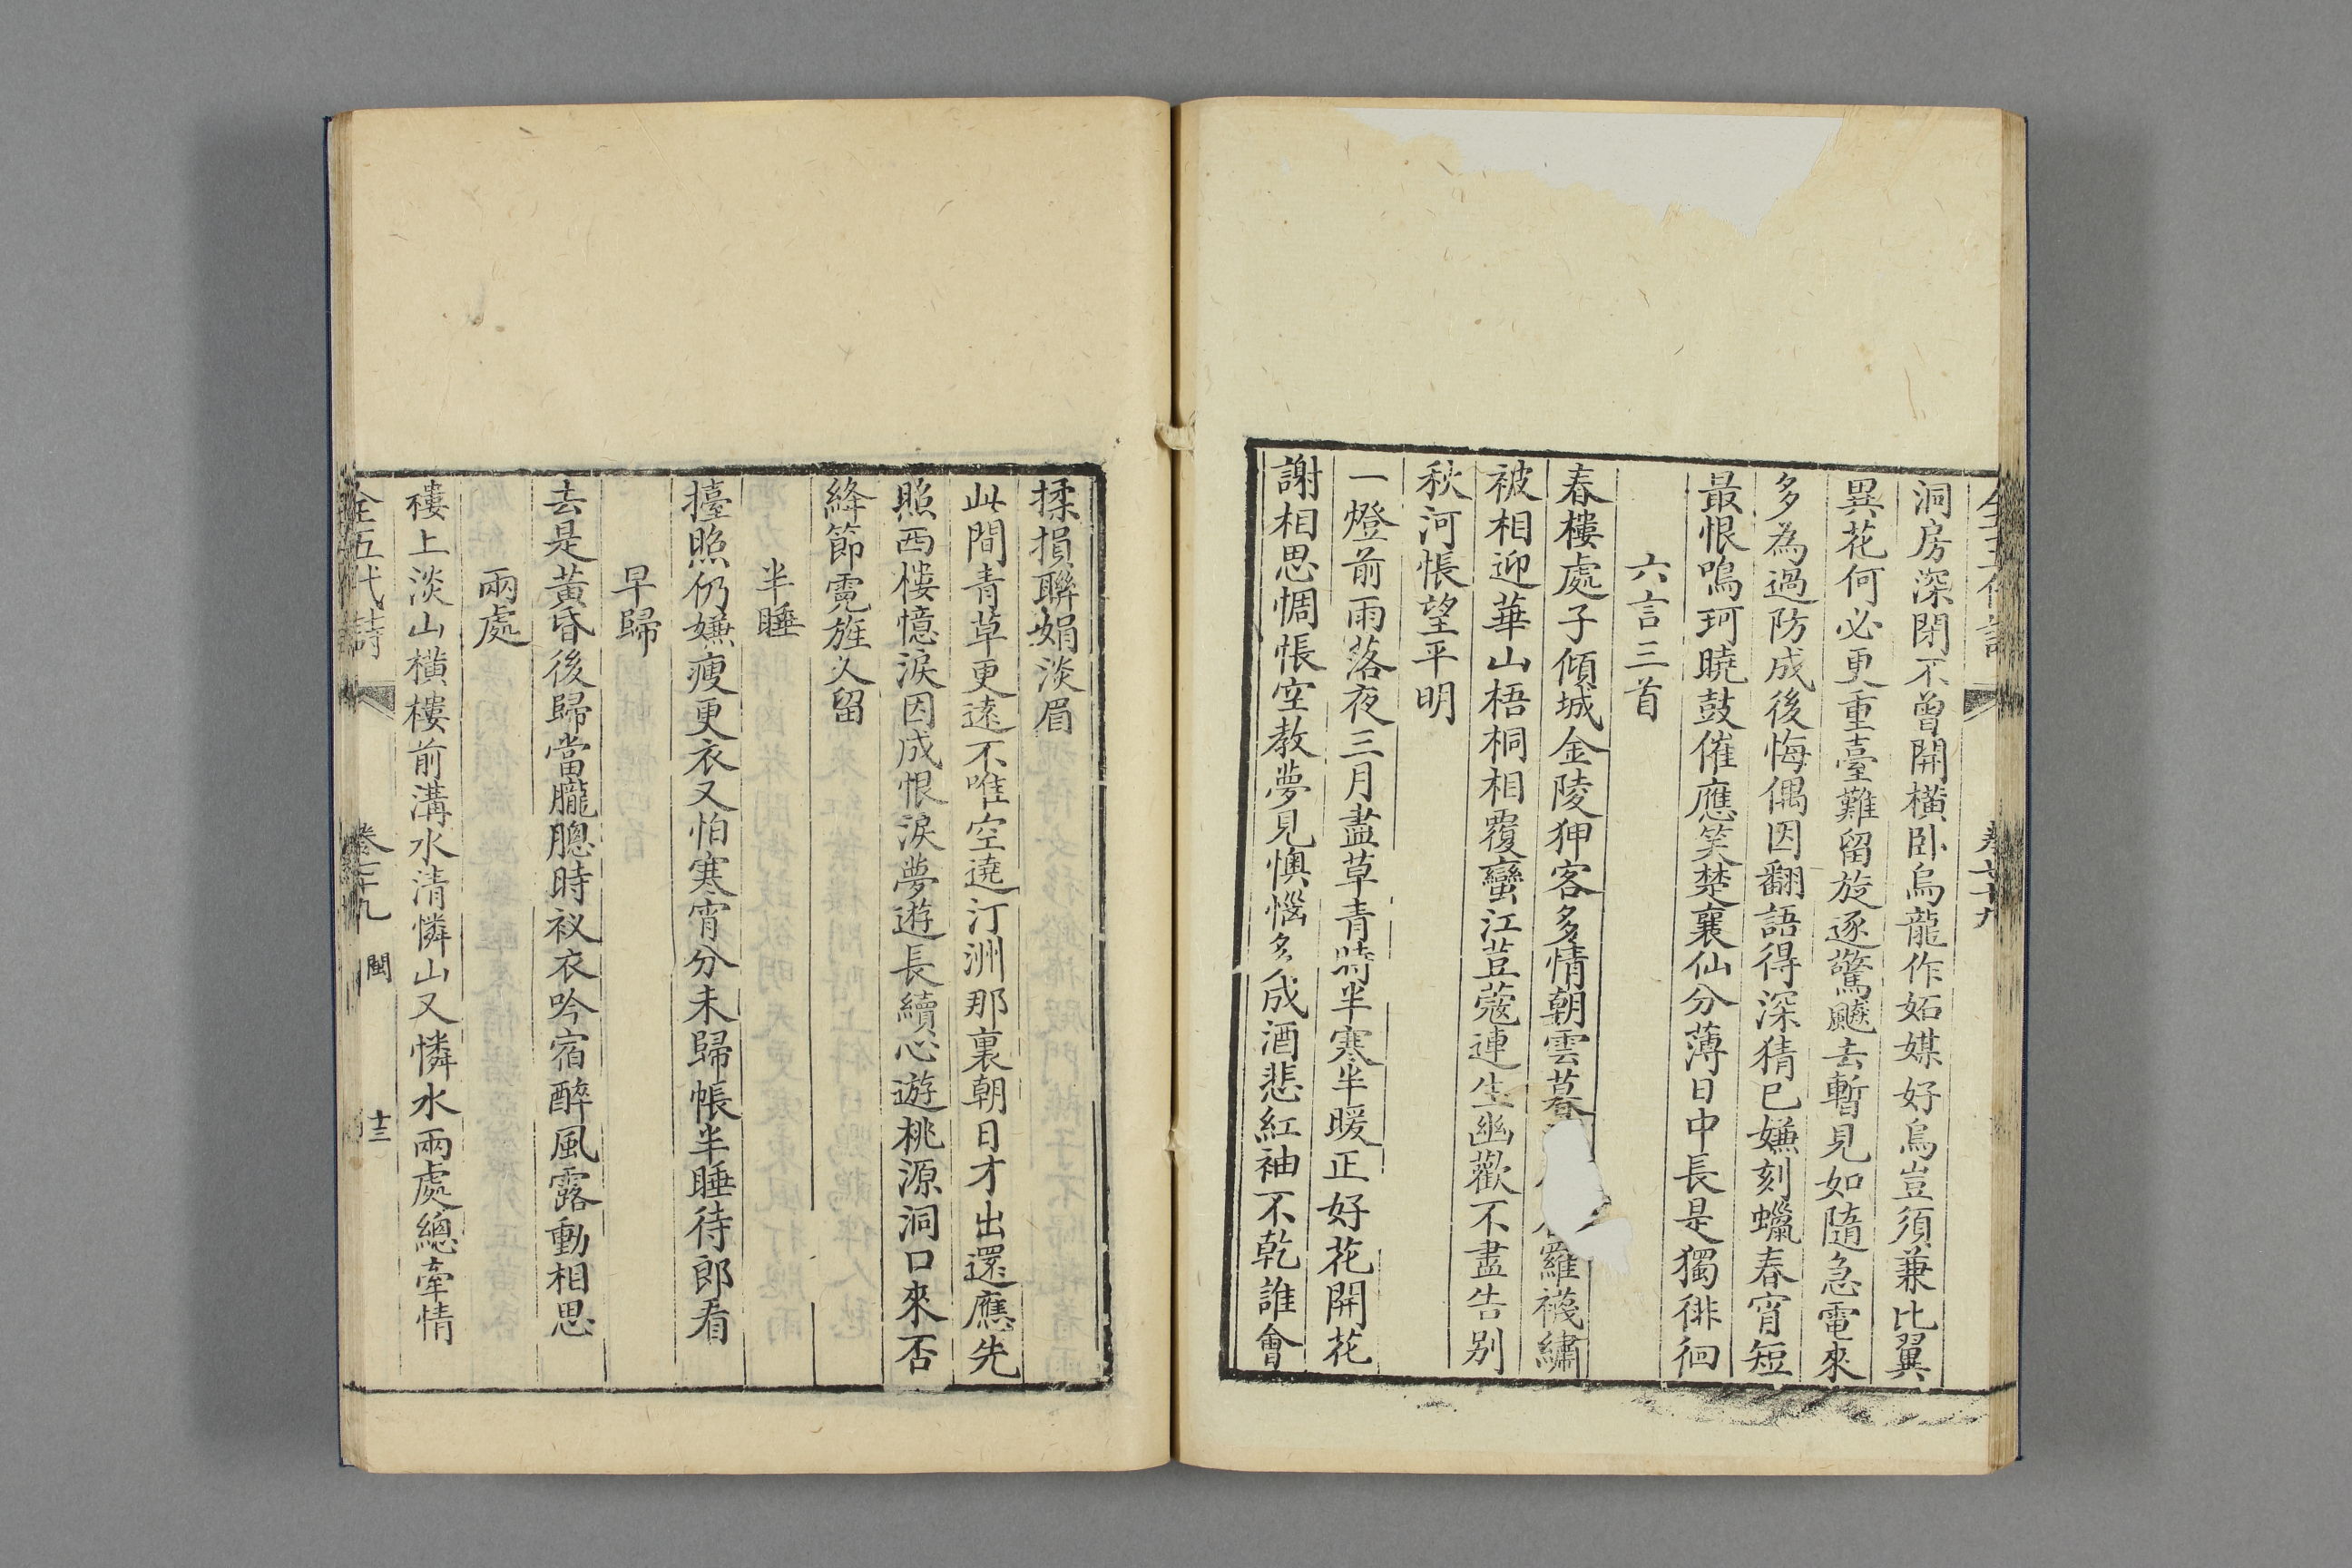 洞房深閉不曾開橫臥烏龍作妬媒好烏豈須兼比翼
異花何必更重臺難留旋逐驚飈去暫見如隨急電來
多為過防成後悔偶因翻語得深猜已嫌刻蠟春宵短
最恨鳴珂曉鼓催應笑楚襄仙分薄日中長是獨徘徊
六言三首
春樓處子傾城金陵狎客多情朝雲暮羅襪繡
被相迎華山梧桐相覆蠻江荳蔻連生幽歡不盡告別
秋河悵望平明
一燈前雨落夜三月盡草青時半寒半暖正好花開花
謝相思惆悵空教夢見懊惱多成酒悲紅袖不乾誰會
揉損聯娟淡眉
此間青草更遠不唯空遶汀洲那裏朝日才出還應先
照西樓憶淚因成恨淚夢遊長續心遊桃源洞口來否
絳節霓旌久留
半睡
擡照仍嫌瘦更衣又怕寒宵分未歸帳半睡待郎看
早歸
去是黃昏後歸當朧朧時衩衣吟宿醉風露動相思
兩處
樓上淡山橫樓前溝水清憐山又憐水兩處總牽情
全五代詩
卷七十九
閩
十三